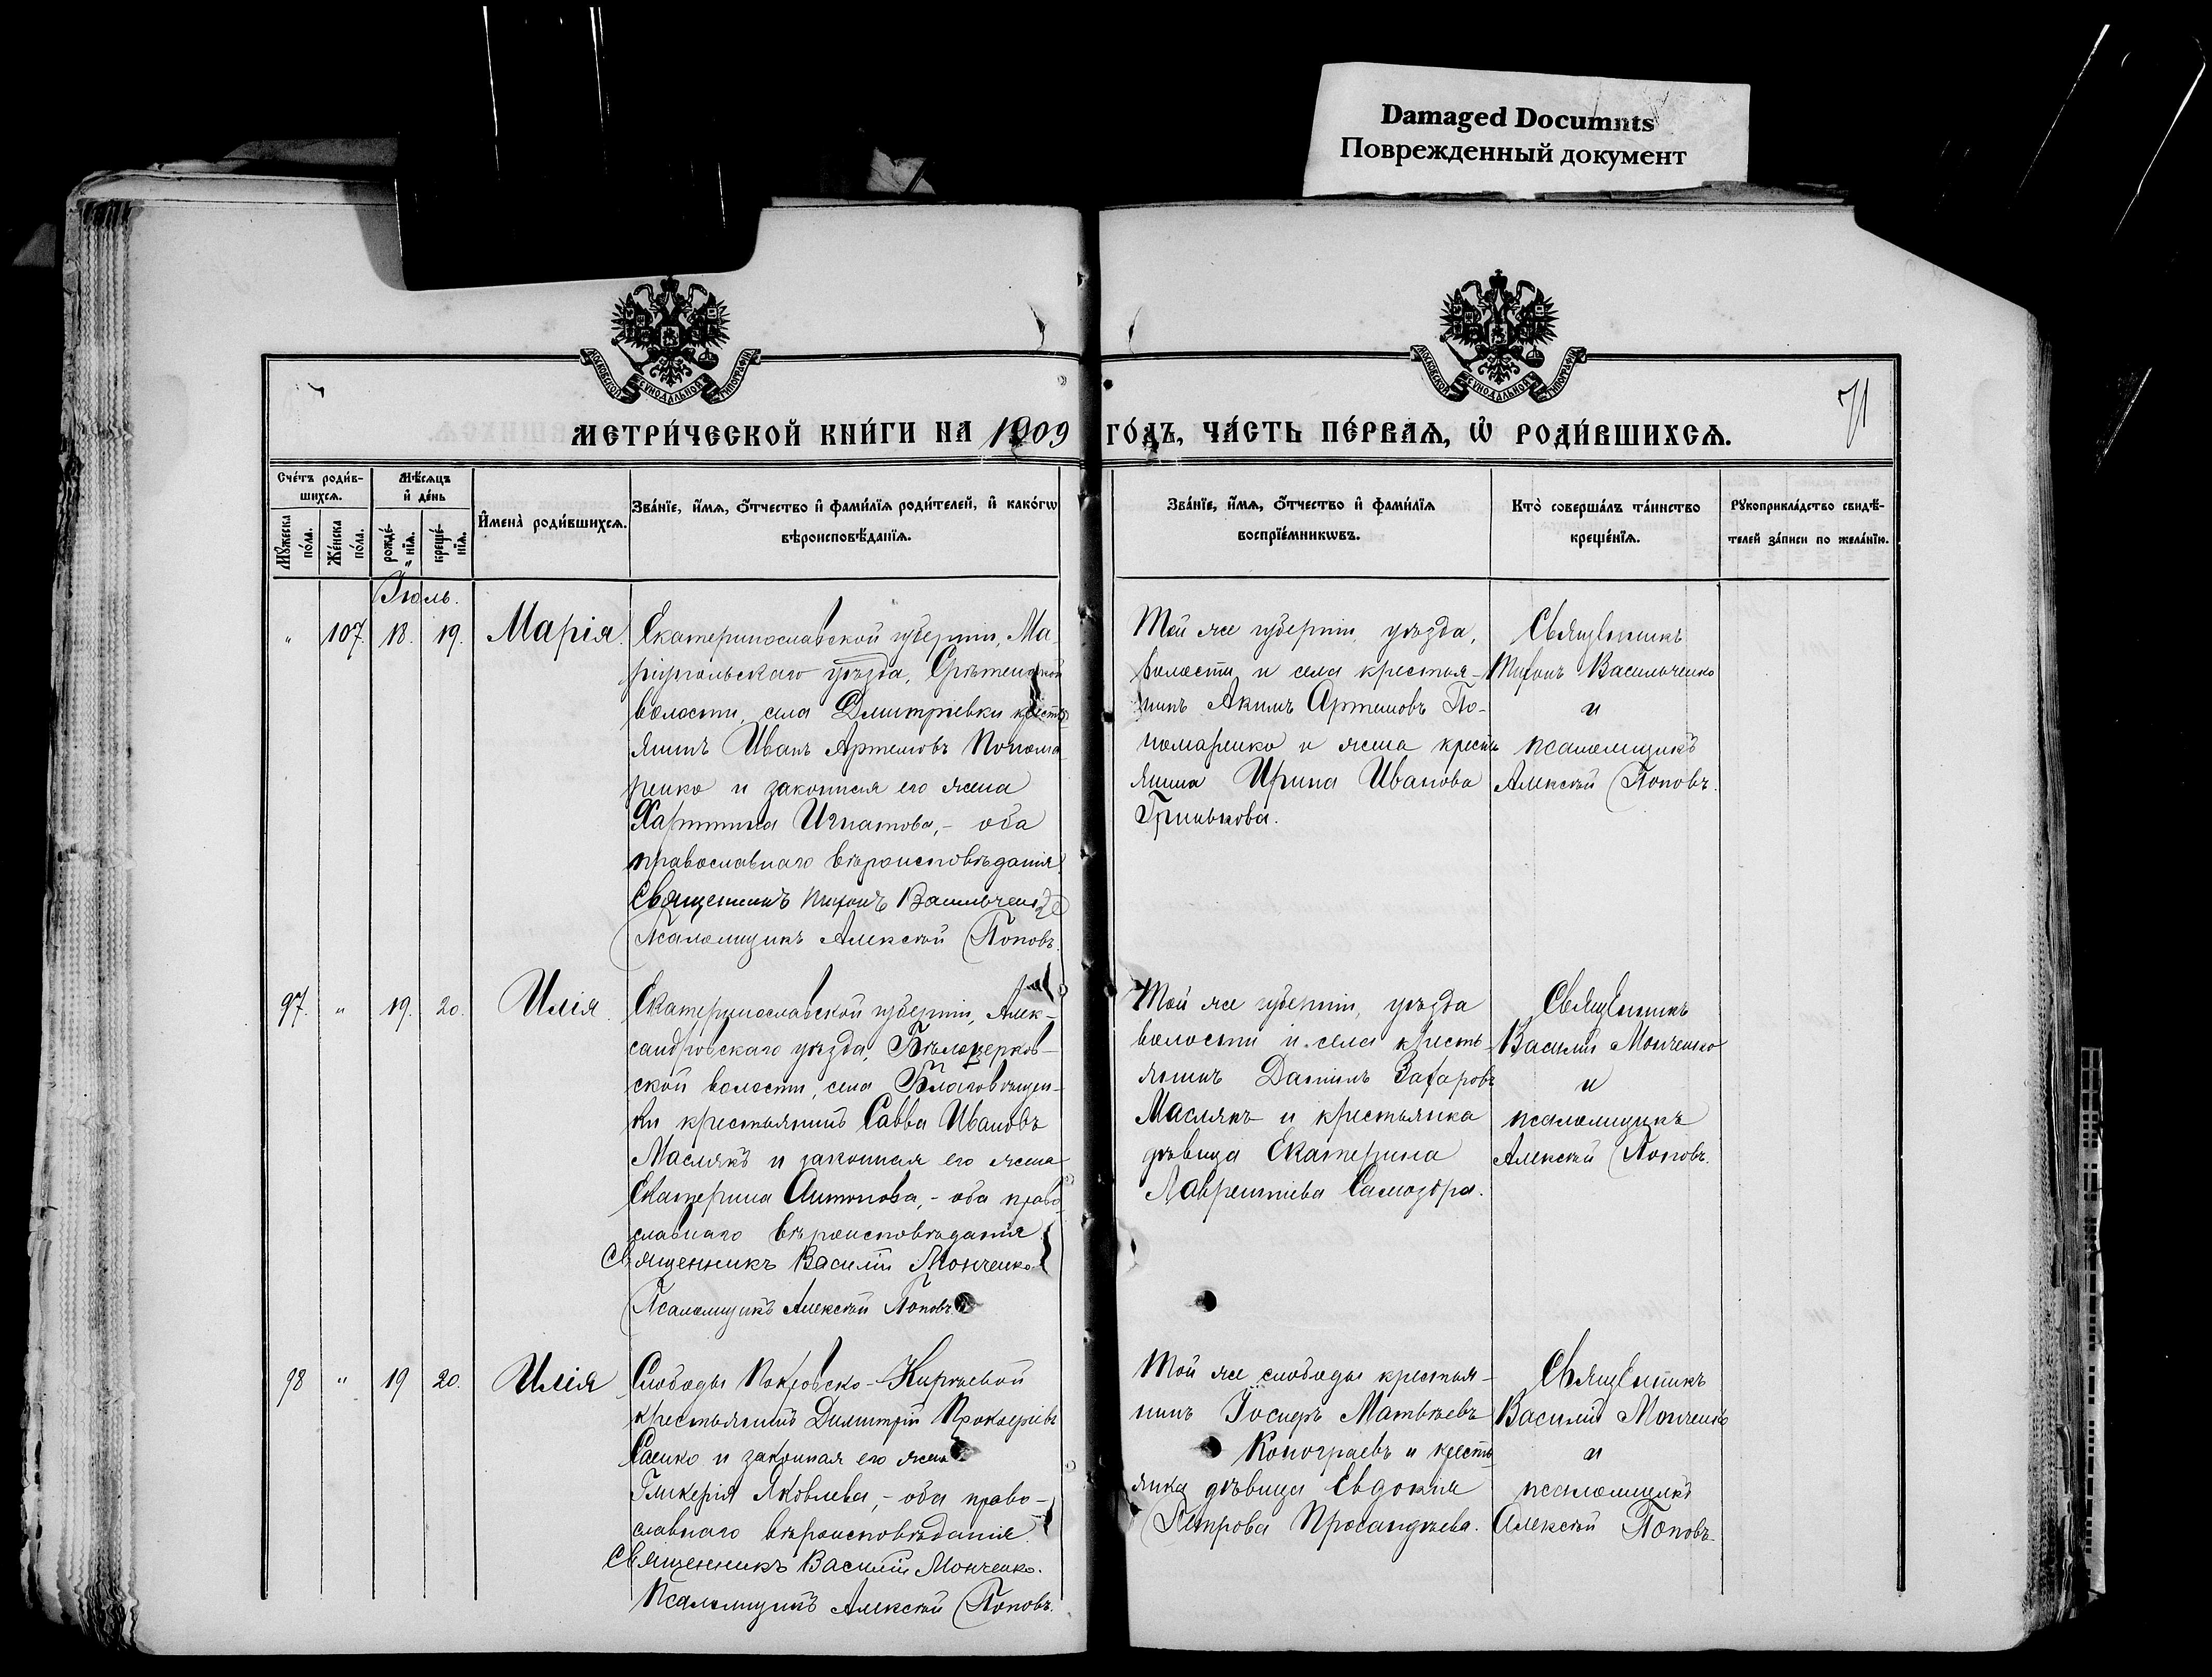 Damaged Documnts
Поврежденный документ
МОСКОВСКОЙ СѴНОДАЛЬНОЙ ТИПОГРАФІИ
МОСКОВСКОЙ СѴНОДАЛЬНОЙ ТИПОГРАФІИ
71
МЕТРИ́ЧЕСКОЙ КНИ́ГИ НА 1909 ГО́ДЪ, ЧА́СТЬ ПЕ́РВАѦ, Ѡ҆ РОДИ́ВШИХСѦ.
Сче́тъ роди́в-
шихсѧ.
Мѣ́сѧцъ
и҆ де́нь
Мꙋ́жеска по́ла.
Же́нска по́ла.
рожде́-
нїѧ.
креще́-
нїѧ.
И҆мена̀ роди́вшихсѧ.
Зва́нїе, и҆́мѧ, ѻ҆́тчество и҆ фами́лїѧ роди́телей, и҆ како́гѡ
вѣроисповѣ́данїѧ.
Зва́нїе, и҆́мѧ, ѻ҆́тчество и҆ фами́лїѧ
воспрїе́мникѡвъ.
Кто̀ соверша́лъ та́инство
креще́нїѧ.
Рꙋкоприкла́дство свидѣ́-
телей за́писи по жела́нїю.
Іюль.
" 107. 18. 19. Марія.
Екатеринославской губерніи, Ма-
ріупольскаго уѣзда, Срѣтенской
волости, села Дмитріевки кресть
янинъ Иванъ Артемовъ Понома
ренко и законная его жена
Харитина Игнатова, - оба
православнаго вѣроисповѣданія.
Священникъ Тихонъ Васильченко
Псаломщикъ Алексѣй Поповъ.
Той же губерніи, уѣзда,
волости и села крестья-
нинъ Акимъ Артемовъ По-
номаренко и жена кресть
янина Ирина Иванова
Гринькова.
Священникъ
Тихонъ Васильченко
и
псаломщикъ
Алексѣй Поповъ.
97. " 19. 20. Илія.
Екатеринославской губерніи, Алек-
сандровскаго уѣзда, Бѣлоцерков-
ской волости, села Благовѣщен-
ки крестьянинъ Савва Ивановъ
Маслякъ и законная его жена
Екатерина Антонова, - оба право
славнаго вѣроисповѣданія.
Священникъ Василій Монченко
Псаломщикъ Алексѣй Поповъ
Той же губерніи, уѣзда
волости и села кресть-
янинъ Даніилъ Захаровъ
Маслякъ и крестьянка
дѣвица Екатерина
Лаврентіева
Священникъ
Василій Монченко
и
псаломщикъ
Алексѣй Поповъ.
98 " 19 20. Илія
Слободы Покровско-Кирѣевой
крестьянинъ Димитрій Прокопіевъ
Саенко и законная его жена
Гликерія Яковлева, - оба право-
славнаго вѣроисповѣданія.
Священникъ Василій Монченко.
Псаломщикъ Алексѣй Поповъ.
Той же слободы крестья-
нинъ Іосифъ Матвѣевъ
Конограевъ и кресть
янка дѣвица Евдокія
Петрова Просандѣева.
Священникъ
Василій Монченко
и
псаломщикъ
Алексѣй Поповъ.